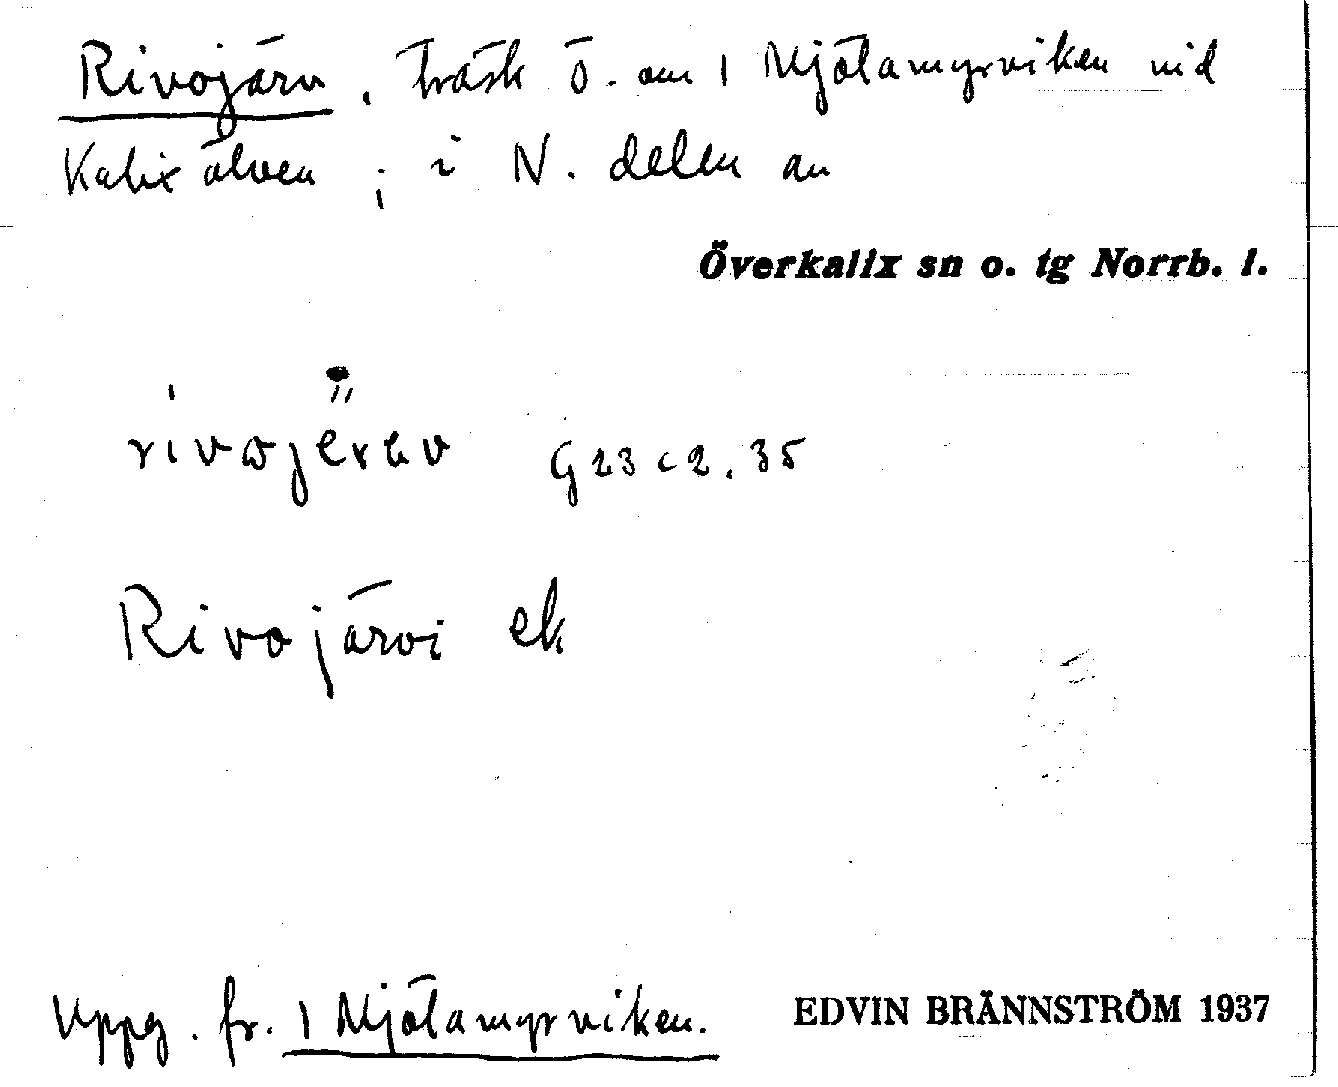 Rivojärv, träsk ö. om 1 Mjölamyrviken vid
Kalix älven; i N. delen av
Överkalix sn o. tg Norrb. l.
rivojërəv G 23 c 2, 35
Rivojärvi ek
Uppg. fr. 1 Mjölamyrviken.
EDVIN BRÄNNSTRÖM 1937